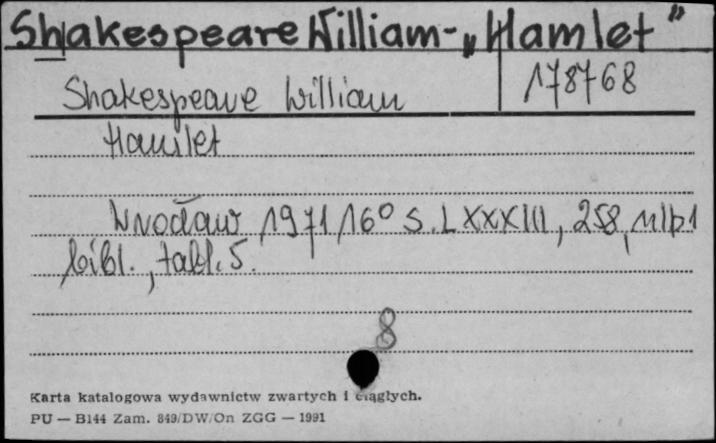 Shakespeare William - „Hamlet”
Shakespeare William
178768
Hamlet
Wrocław 1971 16° s. LXXXIII, 258, nlb 1
bibl., tabl. 5.
8
Karta katalogowa wydawnictw zwartych i ciągłych.
PU — B144 Zam. 849/DW/On ZGG — 1991